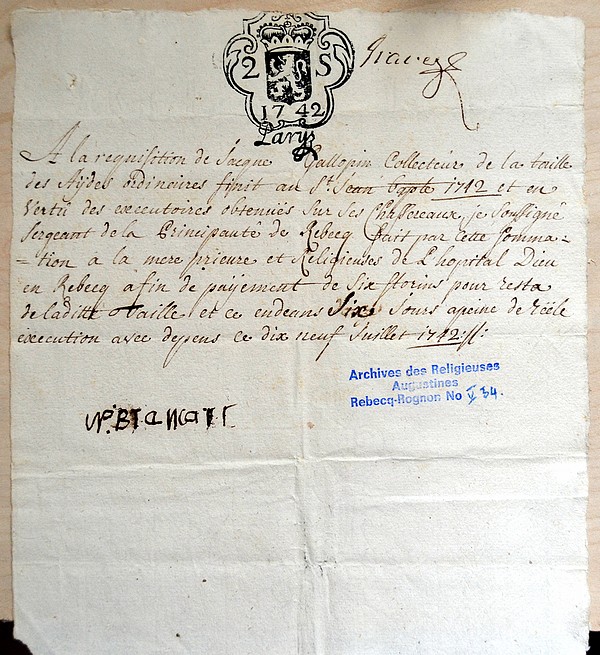 2 S
1742
A la requisition de Jacque Gallopin Collecteur de la taille
des Aÿdes ordineires finit au St. Jean 1742 et en
Vertu des executoires obtenuës sur ses Chasseraux, je soussigné
Sergeant de la Principauté de Rebecq fait par cette somma=
=tion a la mere prieure et Religieuses de l'hopital Dieu
en Rebecq afin de paÿement de six florins pour resta
de laditte Taille et ce endeans Six Jours apeine de reéle
execution avec depens ce dix neuf Juillet 1742 //:
Archives des Religieuses
Augustines
Rebecq-Rognon No V 34.